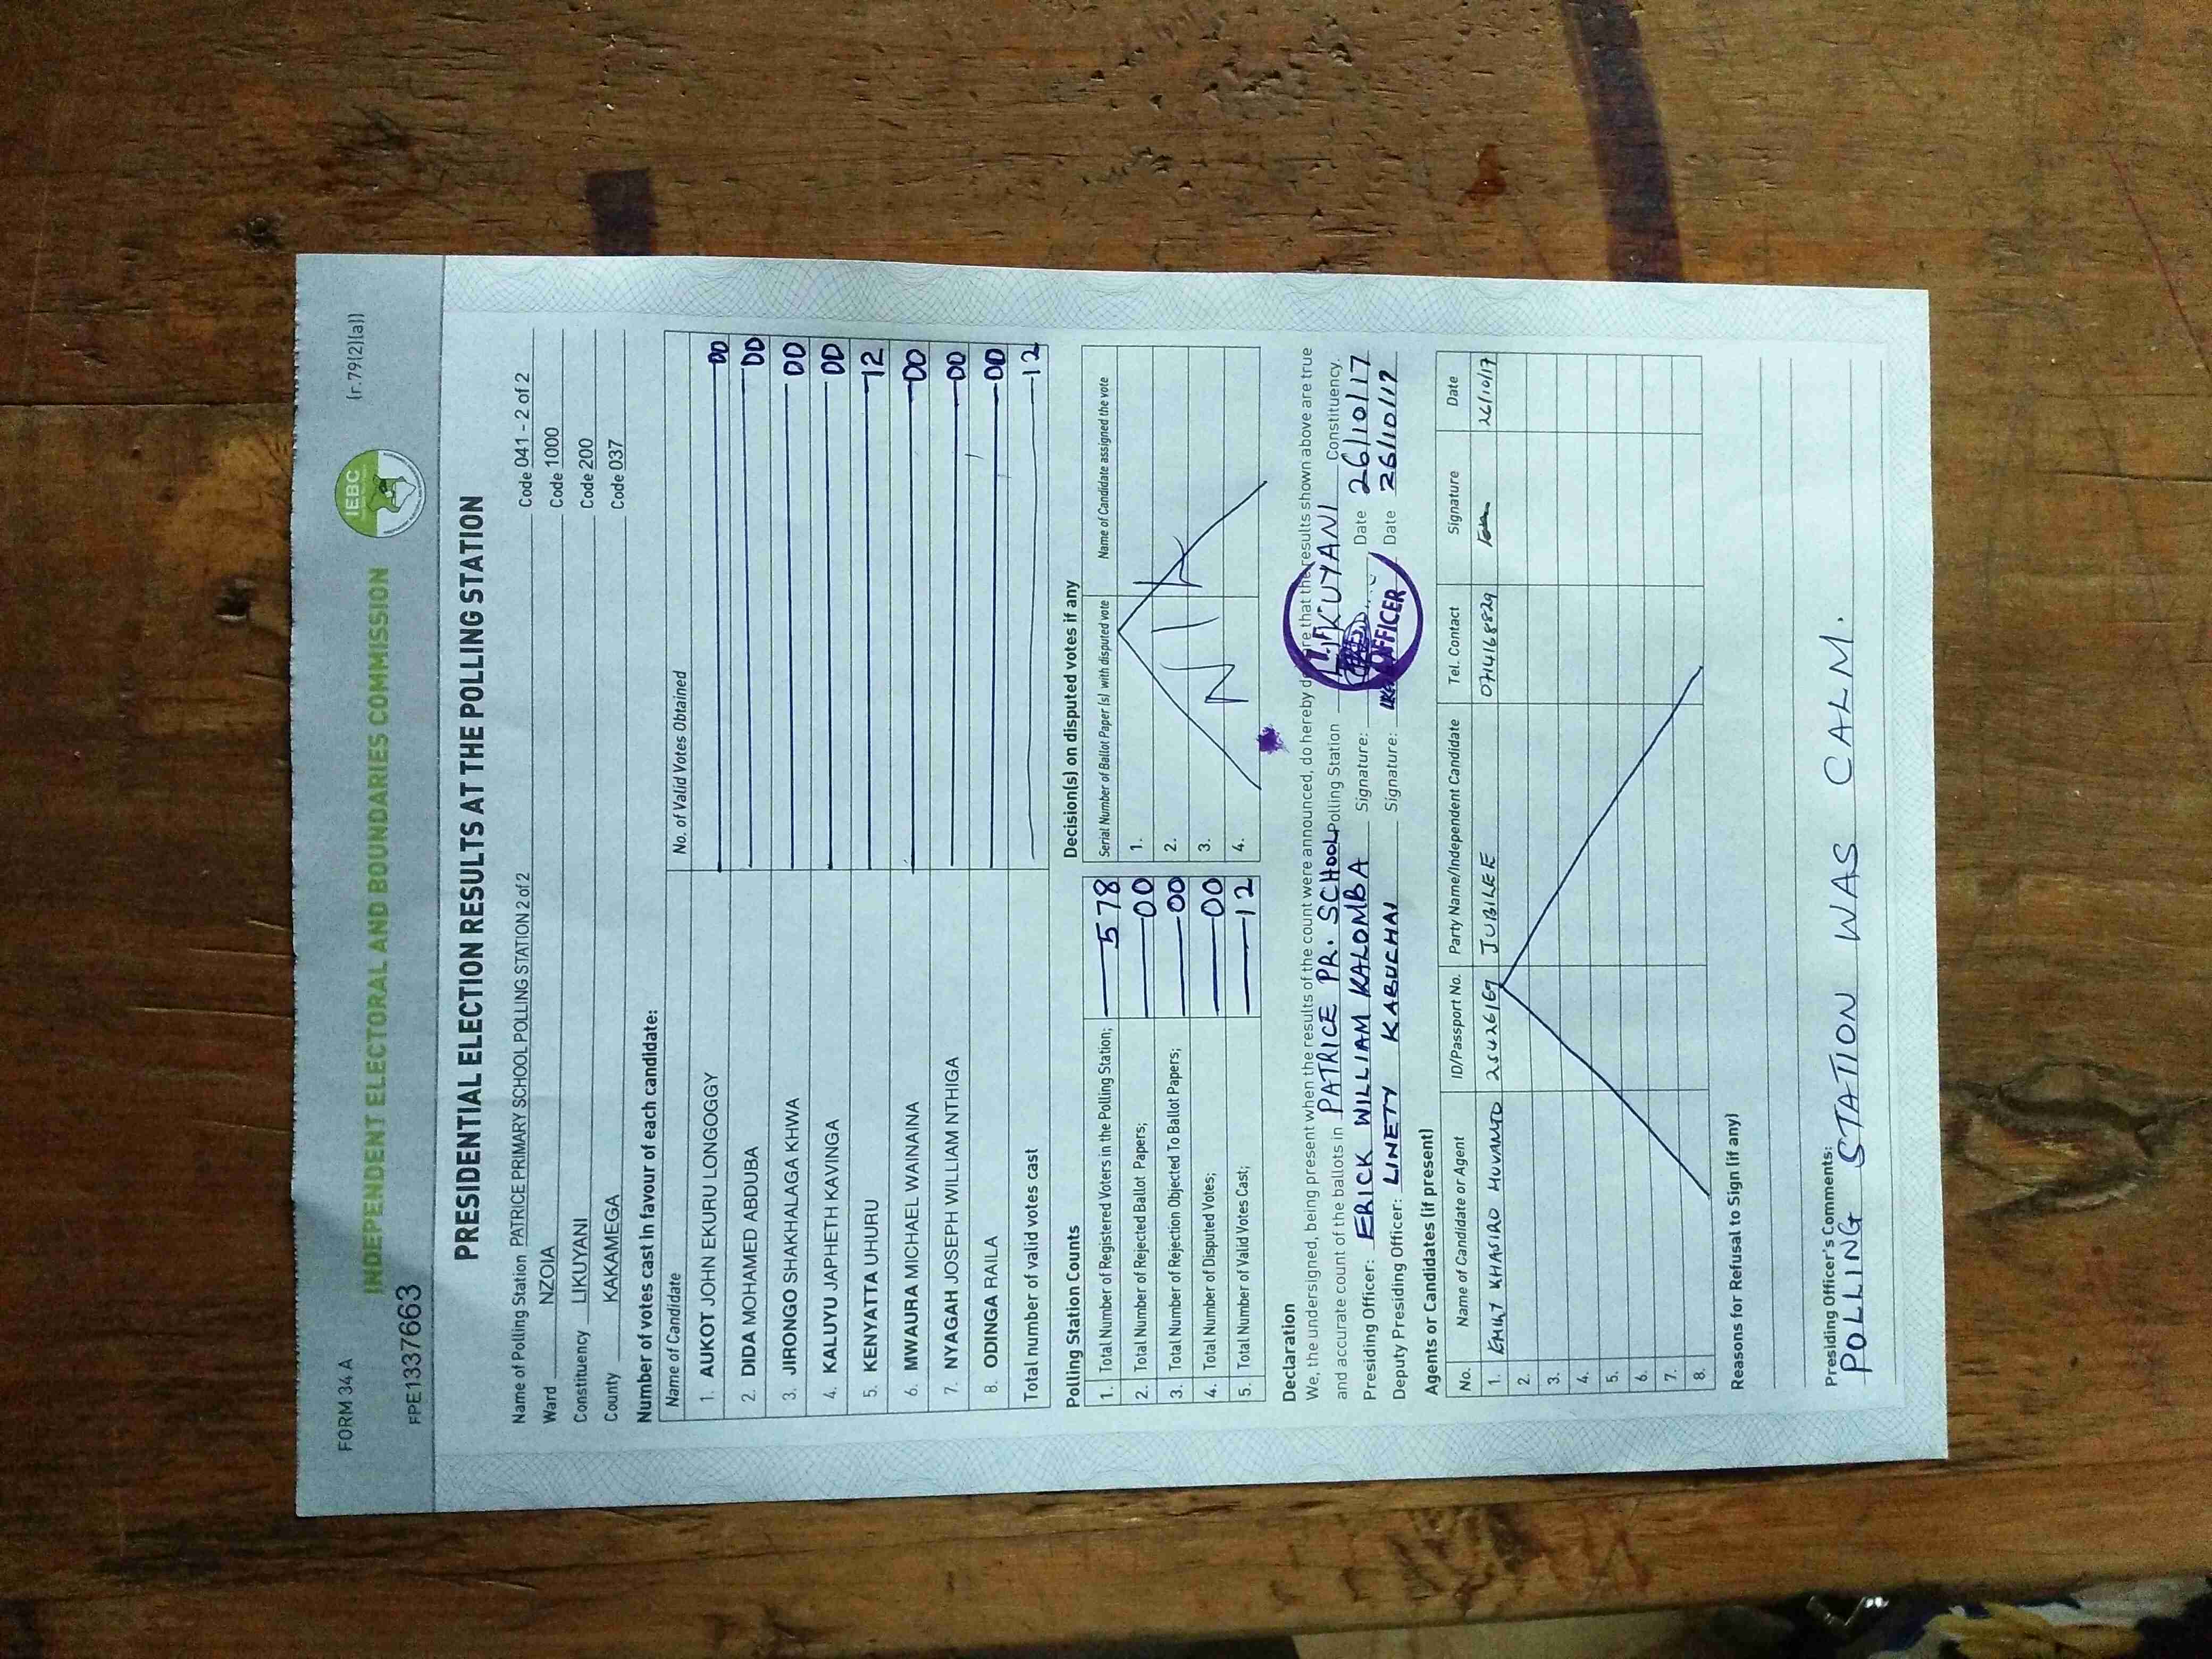 FORM 34 A
(r.79(2)(a))
IEBC
INDEPENDENT ELECTORAL AND BOUNDARIES COMMISSION
FPE1337663
PRESIDENTIAL ELECTION RESULTS AT THE POLLING STATION
Name of Polling Station PATRICE PRIMARY SCHOOL POLLING STATION 2 of 2 Code 041 - 2 of 2
Ward NZOIA Code 1000
Constituency LIKUYANI Code 200
County KAKAMEGA Code 037
Number of votes cast in favour of each candidate:
Name of Candidate No. of Valid Votes Obtained
1. AUKOT JOHN EKURU LONGOGGY 00
2. DIDA MOHAMED ABDUBA 00
3. JIRONGO SHAKHALAGA KHWA 00
4. KALUYU JAPHETH KAVINGA 00
5. KENYATTA UHURU 12
6. MWAURA MICHAEL WAINAINA 00
7. NYAGAH JOSEPH WILLIAM NTHIGA 00
8. ODINGA RAILA 00
Total number of valid votes cast 12
Polling Station Counts
1. Total Number of Registered Voters in the Polling Station; 578
2. Total Number of Rejected Ballot Papers; 00
3. Total Number of Rejection Objected To Ballot Papers; 00
4. Total Number of Disputed Votes; 00
5. Total Number of Valid Votes Cast; 12
Decision(s) on disputed votes if any
Serial Number of Ballot Paper (s) with disputed vote Name of Candidate assigned the vote
1.
2.
3.
4.
Declaration
We, the undersigned, being present when the results of the count were announced, do hereby declare that the results shown above are true
and accurate count of the ballots in PATRICE PR. SCHOOL Polling Station LIKUYANI Constituency.
Presiding Officer: ERICK WILLIAM KALOMBA Signature: Date 26/10/17
Deputy Presiding Officer: LINETY KABUCHAI Signature: Date 26/10/17
OFFICER
Agents or Candidates (if present)
No. Name of Candidate or Agent ID/Passport No. Party Name/Independent Candidate Tel. Contact Signature Date
1. EMILY KHASIRO 25426167 JUBILEE 0714168829 26/10/17
2.
3.
4.
5.
6.
7.
8.
Reasons for Refusal to Sign (if any)
Presiding Officer's Comments:
POLLING STATION WAS CALM.